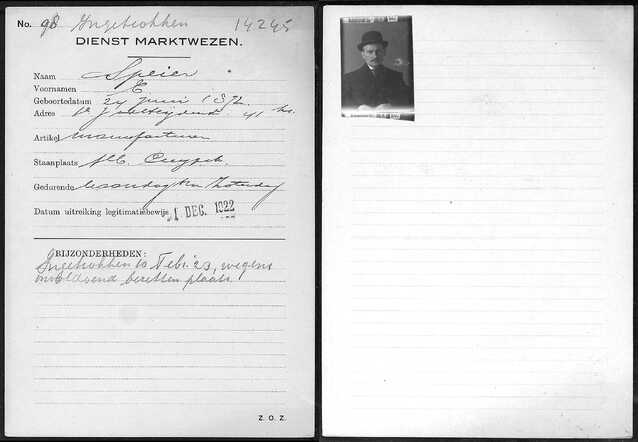 No. 98 Ingetrokken 14245
DIENST MARKTWEZEN.
Naam Speier
Voornamen E
Geboortedatum 24 juni
Adres 41 hs.
Artikel manufacturen
Staanplaats Alb. Cuypstr.
Gedurende Maandag t/m Zaterdag
Datum uitreiking legitimatiebewijs 1 DEC. 1922
BIJZONDERHEDEN:
Ingetrokken 10 Febr. '23, wegens
onvoldoend bezetten plaats
Z. O. Z.